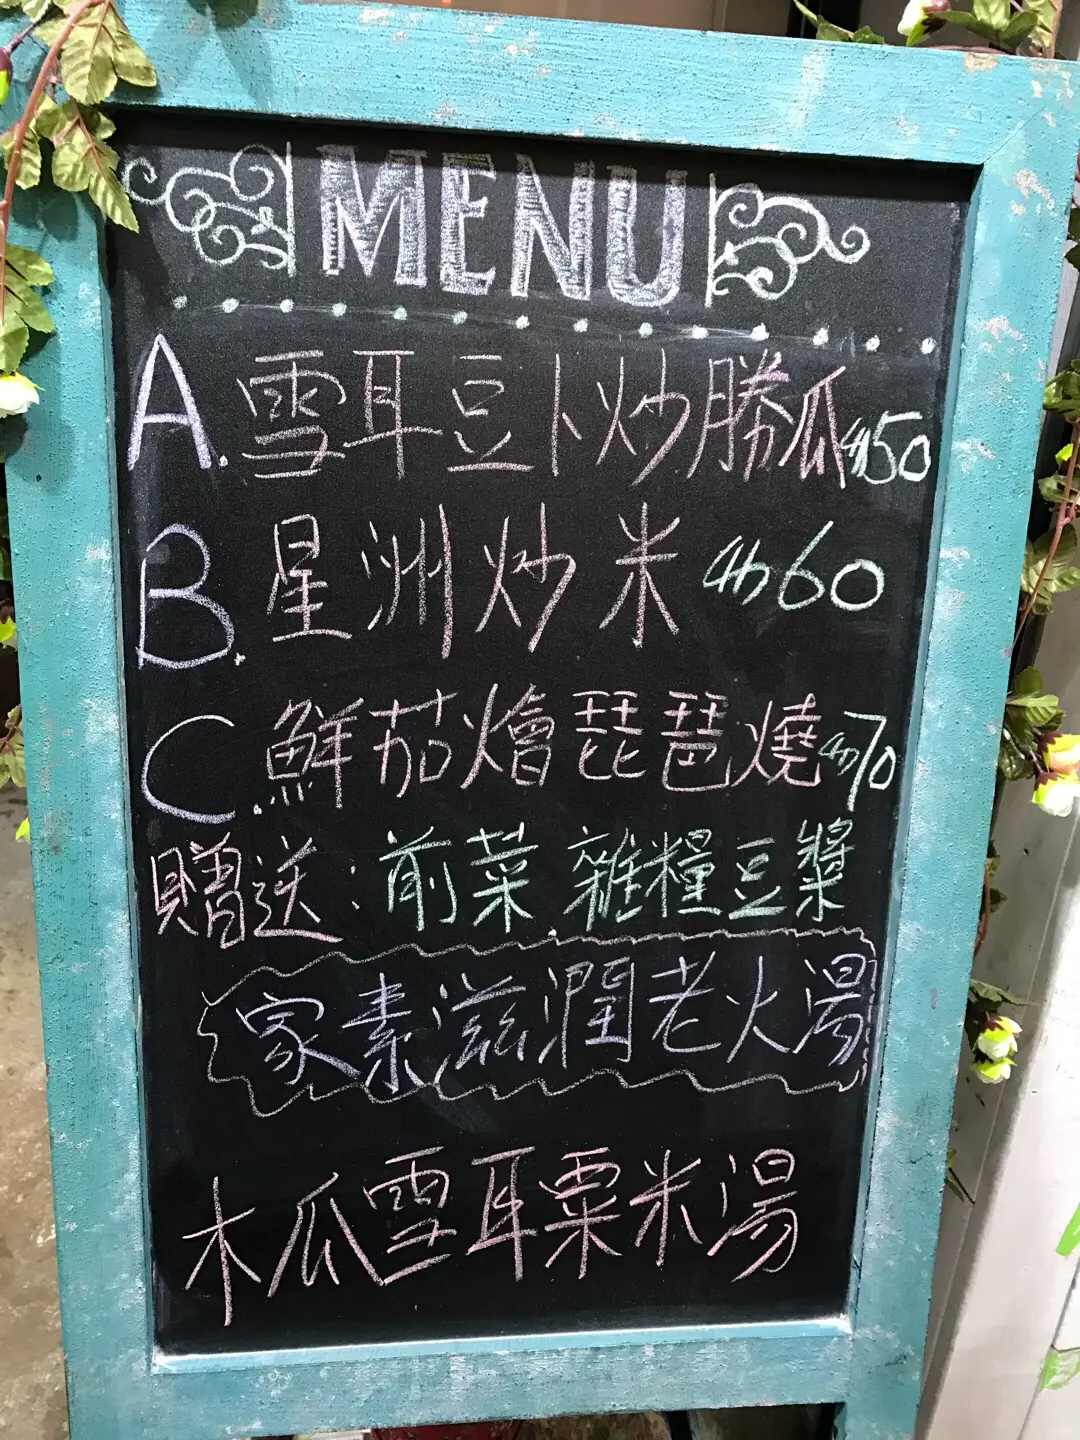 MENU
A.雪耳豆卜炒勝瓜$50
B.星洲炒米 $60
C.鮮茄燴琵琶燒$70
贈送：前菜 雜糧豆漿
家素滋潤老火湯
木瓜雪耳粟米湯